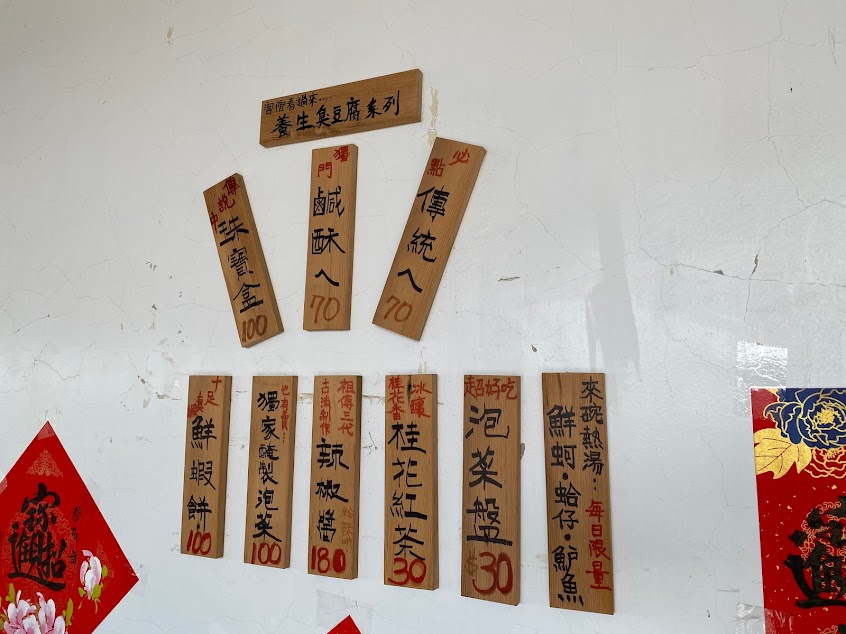 客倌看過來…
養生臭豆腐系列
傳說中
珠寶盒
100
獨門
鹹酥ㄟ
70
必點
傳統ㄟ
70
十足真
鮮蝦餅.
100
也有賣…
獨家醃製泡菜
100
祖傳三代
古法制作
辣椒醬
180
冰釀
桂花香
桂花紅茶
30
超好吃
泡菜盤
$30
來碗熱湯…每日限量
鮮蚵.蛤仔.鱸魚